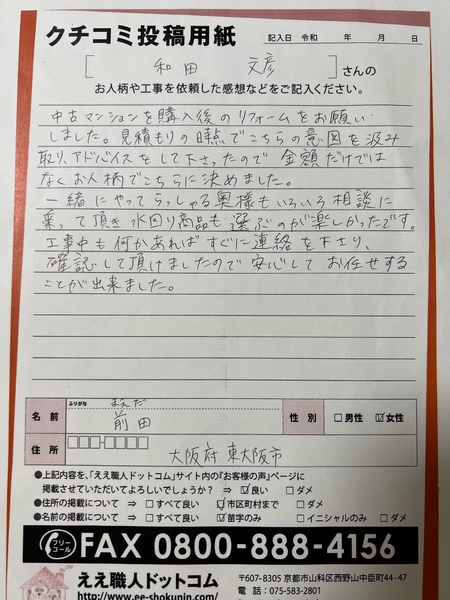 クチコミ投稿用紙
記入日 令和 年 月 日
[ 和田 文彦 ] さんの
お人柄や工事を依頼した感想などをご記入ください。
中古マンションを購入後のリフォームをお願い
しました。見積もりの時点でこちらの意図を汲み
取り、アドバイスをして下さったので 金額だけでは
なくお人柄でこちらに決めました。
一緒にやってらっしゃる奥様もいろいろ相談に
乗って頂き 水回り商品も 選ぶのが楽しかったです。
工事中も何かあれば すぐに連絡を下さり、
確認して頂けましたので 安心して お任せする
ことが出来ました。
ふりがな まえだ
名前 前田 性別 □男性 ☑女性
住所 大阪府 東大阪市
●上記内容を、「ええ職人ドットコム」サイト内の『お客様の声』ページに
掲載させていただいてよろしいでしょうか? ⇒ ☑良い □ダメ
●住所の掲載について ⇒ □すべて良い ☑市区町村まで □ダメ
●名前の掲載について ⇒ □すべて良い ☑苗字のみ □イニシャルのみ □ダメ
フリーコール FAX 0800-888-4156
ええ職人ドットコム
http://www.ee-shokunin.com/
〒607-8305 京都市山科区西野山中臣町44-47
電話:075-583-2801